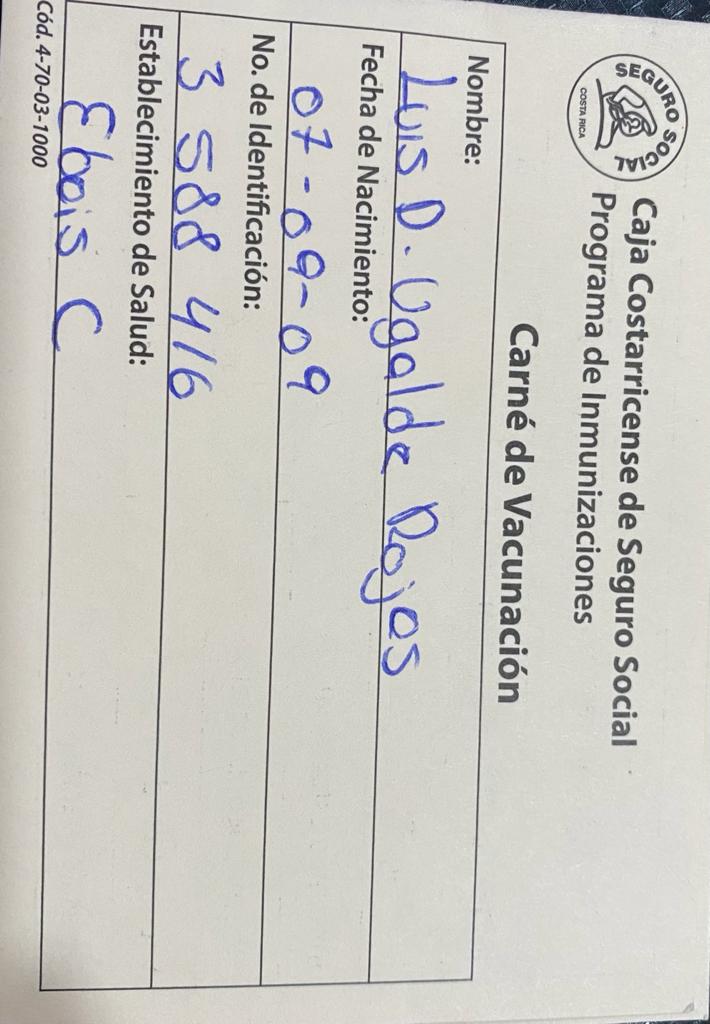 SEGURO SOCIAL
COSTA RICA
Caja Costarricense de Seguro Social
Programa de Inmunizaciones
Carné de Vacunación
Nombre:
Luis D. Ugalde Rojas
Fecha de Nacimiento:
07-09-09
No. de Identificación:
3 588 416
Establecimiento de Salud:
Ebais C
Cód. 4-70-03-1000